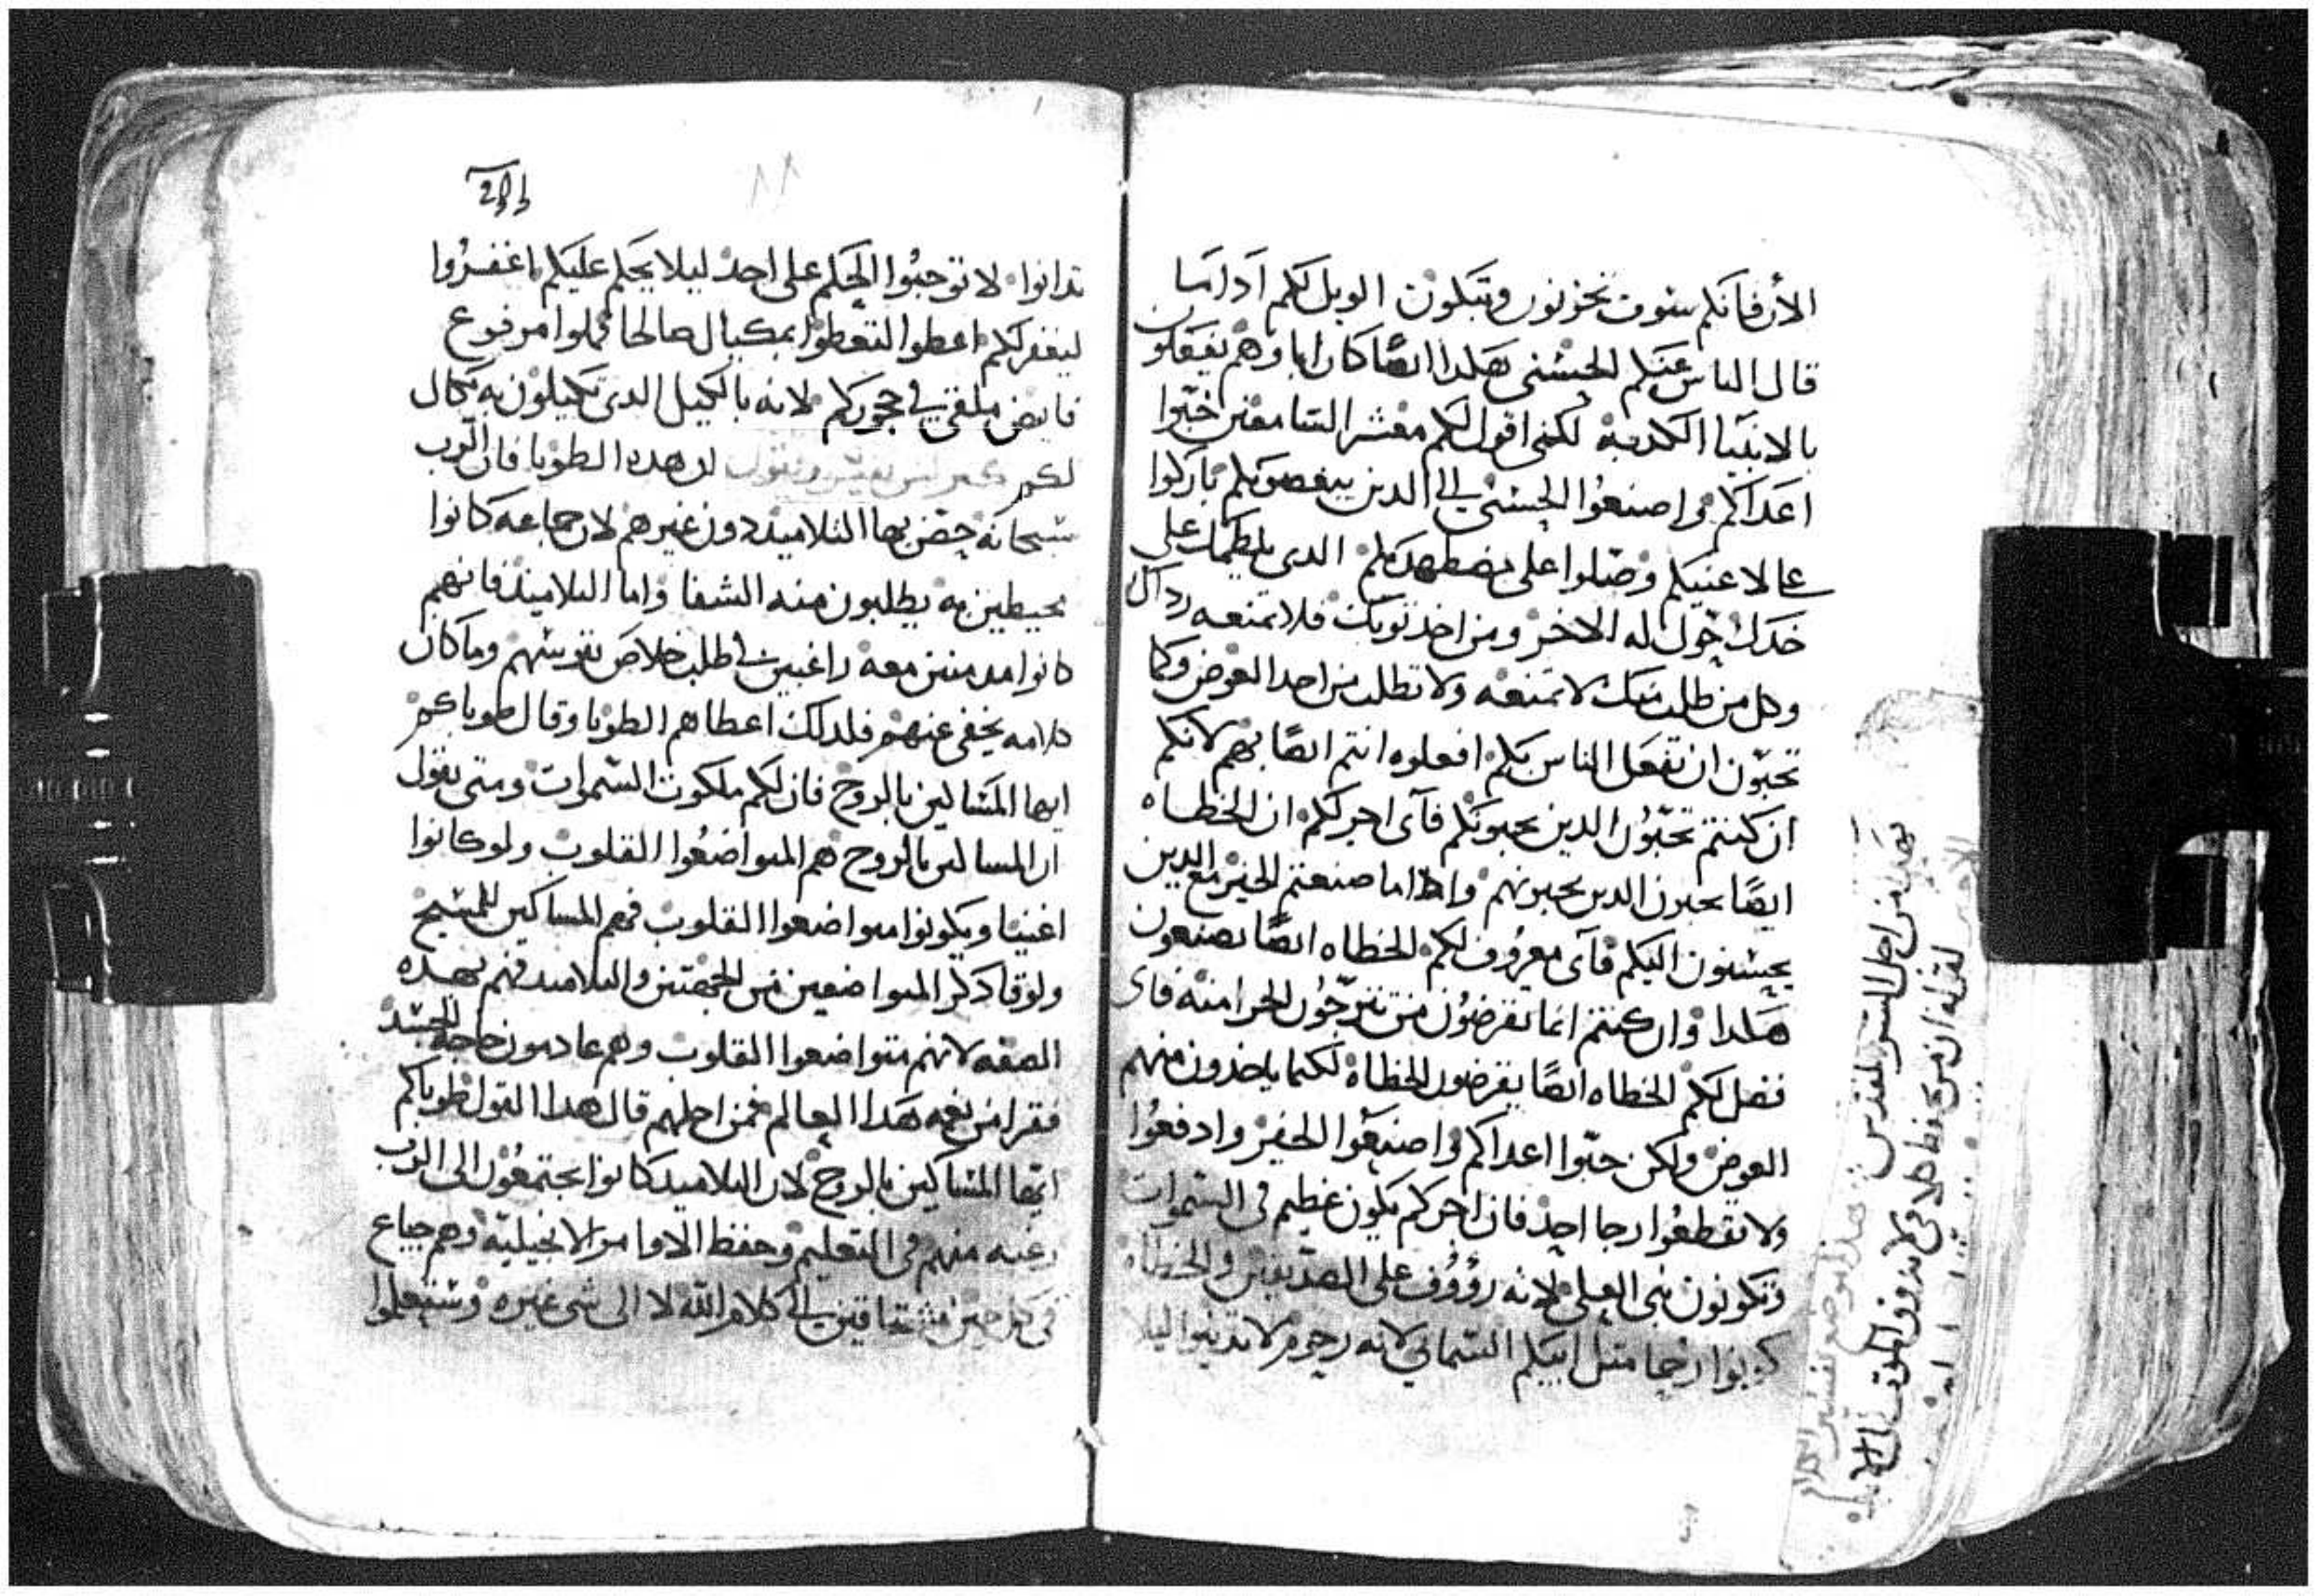 الأن فانكم سوف تحزنون وتبكون الويل لكم اذا ما
قال الناس عنكم الحسنى هكدا ايضًا كان اباوهم يفعلون
بالانبيا الكدبة لكنى اقول لكم معشر السامعين حبّوا
اعداكم و اصنعُوا الحسنى الى الدين يبغضونكم باركوا
على لاعنيكم وصَلوا على مضطهديكم الدى يلطمك على
خدك حوّل له الاخر ومن اخد توبك فلا تمنعه رداك
وكل من طلب منك لا تمنعه ولا تطلب من احد العوض وكما
تحبّون ان تفعل الناس بكم افعلوه انتم ايضًا بهم لانكم
ان كنتم تحبّوُن الدين يحبونكم فآى اجر لكم ان الخطاه
ايضًا يحبون الدين يحبونهم وادا ما صنعتم الخير مع الدين
يحسنون اليكم فآى معروُف لكم الخطاه ايضًا يصنعون
هكدا وان كنتم انما تقرضوُن من تترجّوُن الجزا منه فاى
فضل لكم الخطاه ايضًا يقرضون الخطاة لكيما ياخدون منهم
العوض ولكن حبّوا اعداكم واصنعوا الخير وادفعوُا
ولا تقطعُوا رجا احد فان اجركم يكون عظيم فى السموات
وتكونون بنى العلى لانه رؤوُف على الصدّيقين والخطاه
كونوا رحما متل ابيكم السماني لانه رحوم لا تدينوا ليلا
تدانوا لا توجبُوا الحكم على احد ليلا يحكم عليكم اغفروُا
ليغفر لكم اعطوا لتعطوا بمكيال صالحا مملوا مرفوع
فايض ملقى في حجوركم لانه بالكيل الدى تكيلون به يكال
لكم نفسّر ونقول ان هده الطوبا فان الرب
سبحانه خصّ بها التلاميد دون غيرهم لان جماعه كانوا
محيطين به يطلبون منه الشفا واما التلاميد فانهم
كانوا مدمنين معه راغبين في طلب خلاص نفوسهم وما كان
كلامه يخفى عنهم فلدلك اعطاهم الطوبا وقال طوباكم
ايها المساكين بالروح فان لكم ملكوت السموات ومتى يقول
ان المساكين بالروح هم المتواضعُوا القلوب ولو كانوا
اغنيا ويكونوا متواضعوا القلوب فهم المساكين للمسيح
ولوقا دكر المتواضعين من الجهتين والتلاميد فهم بهده
الصفه لانهم متواضعوا القلوب وهم عادمون حاجة الجسد
فقرا من نعمه هدا العالم فمن اجلهم قال هدا القول طوباكم
ايها المساكين بالروح لان التلاميد كانوا يجتمعُون الى الرب
رغبه منهم فى التعليم وحفظ الاوامر الانجيليّة وهم جياع
فى كل حين مشتاقين الى كلام الله لا الى شى غيره